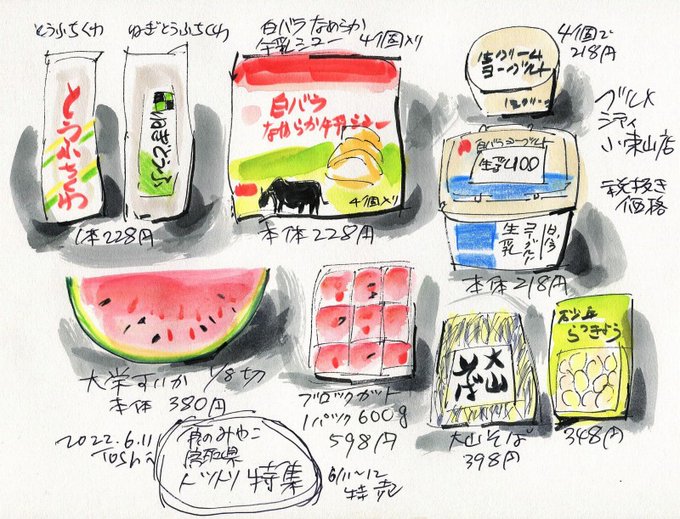 とうふちくわ
ねぎとうふちくわ
白バラなめらか
牛乳シュー 4個入り
4個で
218円
とうふちくわ
ねぎとうふ
白バラ
なめらか牛乳シュー
4個入り
生クリーム
ヨーグルト
白バラヨーグルト
生乳100
ヨーグルト
生乳
グルメ
シティ
小束山店
税抜き
価格
1本228円
本体228円
本体218円
大栄すいか 1/8切
本体 380円
ブロックカット
1パック600g
598円
6/11~12
特売
大山
そば
大山そば
398円
砂丘
らっきょう
348円
2022.6.11
Toshi
食のみやこ
鳥取県
トットリ特集